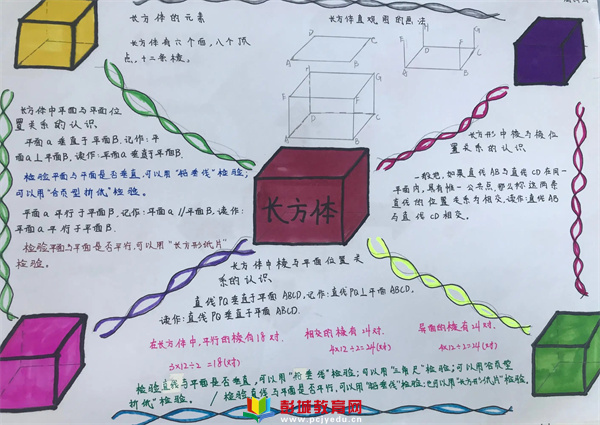 长方体的元素
长方体有六个面,八个顶
点,十二条棱。
长方体直观图的画法
D C
A B
D C
A B
G
H G
E F
D C
A B
长方体中平面与平面位
置关系的认识
平面α垂直于平面β.记作:平
面α⊥平面β.读作:平面α垂直于平面β.
检验平面与平面是否垂直,可以用"铅垂线"检验;
可以用"合页型折纸"检验。
平面α平行于平面β.记作:平面α//平面β.读作:
平面α平行于平面β.
检验平面与平面是否平行,可以用"长方形纸片"
检验。
长方形中棱与棱位
置关系的认识
一般地,如果直线AB与直线CD在同一
平面内,具有唯一公共点,那么称这两条
直线的位置关系为相交,读作:直线AB
与直线CD相交。
长方体
长方体中棱与平面位置关
系的认识
直线PQ垂直于平面ABCD,记作:直线PQ⊥平面ABCD,
读作:直线PQ垂直于平面ABCD.
在长方体中,平行的棱有18对. 相交的棱有24对. 异面的棱有24对.
3×12÷2=18(对) 4×12÷2=24(对) 4×12÷2=24(对)
检验直线与平面是否垂直,可以用"铅垂线"检验;可以用"三角尺"检验;可以用"合页型
折纸"检验。 / 检验直线与平面是否平行,可以用"铅垂线"检验;也可以用"长方形纸片"检验。
彭城教育网
www.pcjyedu.cn